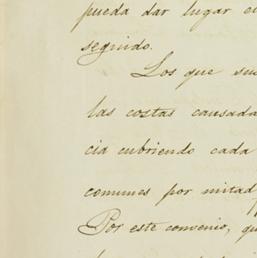 pueda dar lugar
seguido.
Los que sus
las costas causada
cia cubriendo cada
comunes por mitad
Por este convenio, qu